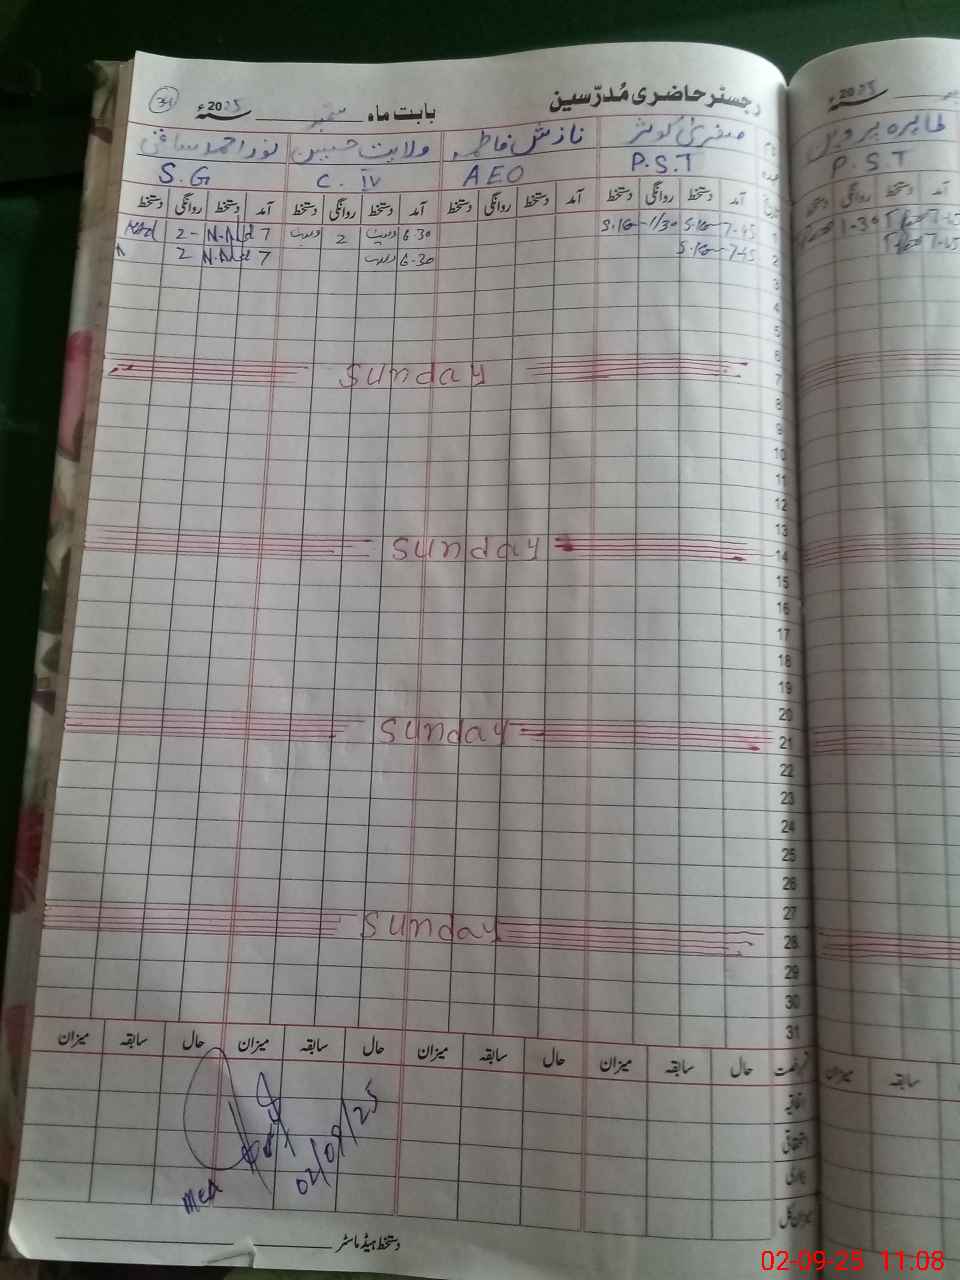 رجسٹر حاضری مُدرّسین بابت ماہ ستمبر سنہ 2025ء 31
صغریٰ کوثر نازش فاطمہ ولایت حسین
P.S.T AEO C. IV S.G
تاریخ آمد دستخط روانگی دستخط آمد دستخط روانگی دستخط آمد دستخط روانگی دستخط آمد دستخط روانگی دستخط
1 7-45 S.K 1/30 S.K 6-30 ولایت 2 ولایت 7 2-
2 7-45 S.K 6-30 ولایت 7 2
3
4
5
6
7 Sunday
8
9
10
11
12
13
14 Sunday
15
16
17
18
19
20
21 Sunday
22
23
24
25
26
27
28 Sunday
29
30
31
حال سابقہ میزان حال سابقہ میزان حال سابقہ میزان حال سابقہ میزان
اتفاقیہ
استحقاقی
بیماری
میزان کل
MEA
02/09/25
دستخط ہیڈ ماسٹر
سنہ 2025ء
طاہرہ پروین
P.S.T
آمد دستخط روانگی دستخط
7-45 1-30
7-45
سابقہ میزان
02-09-25 11:08